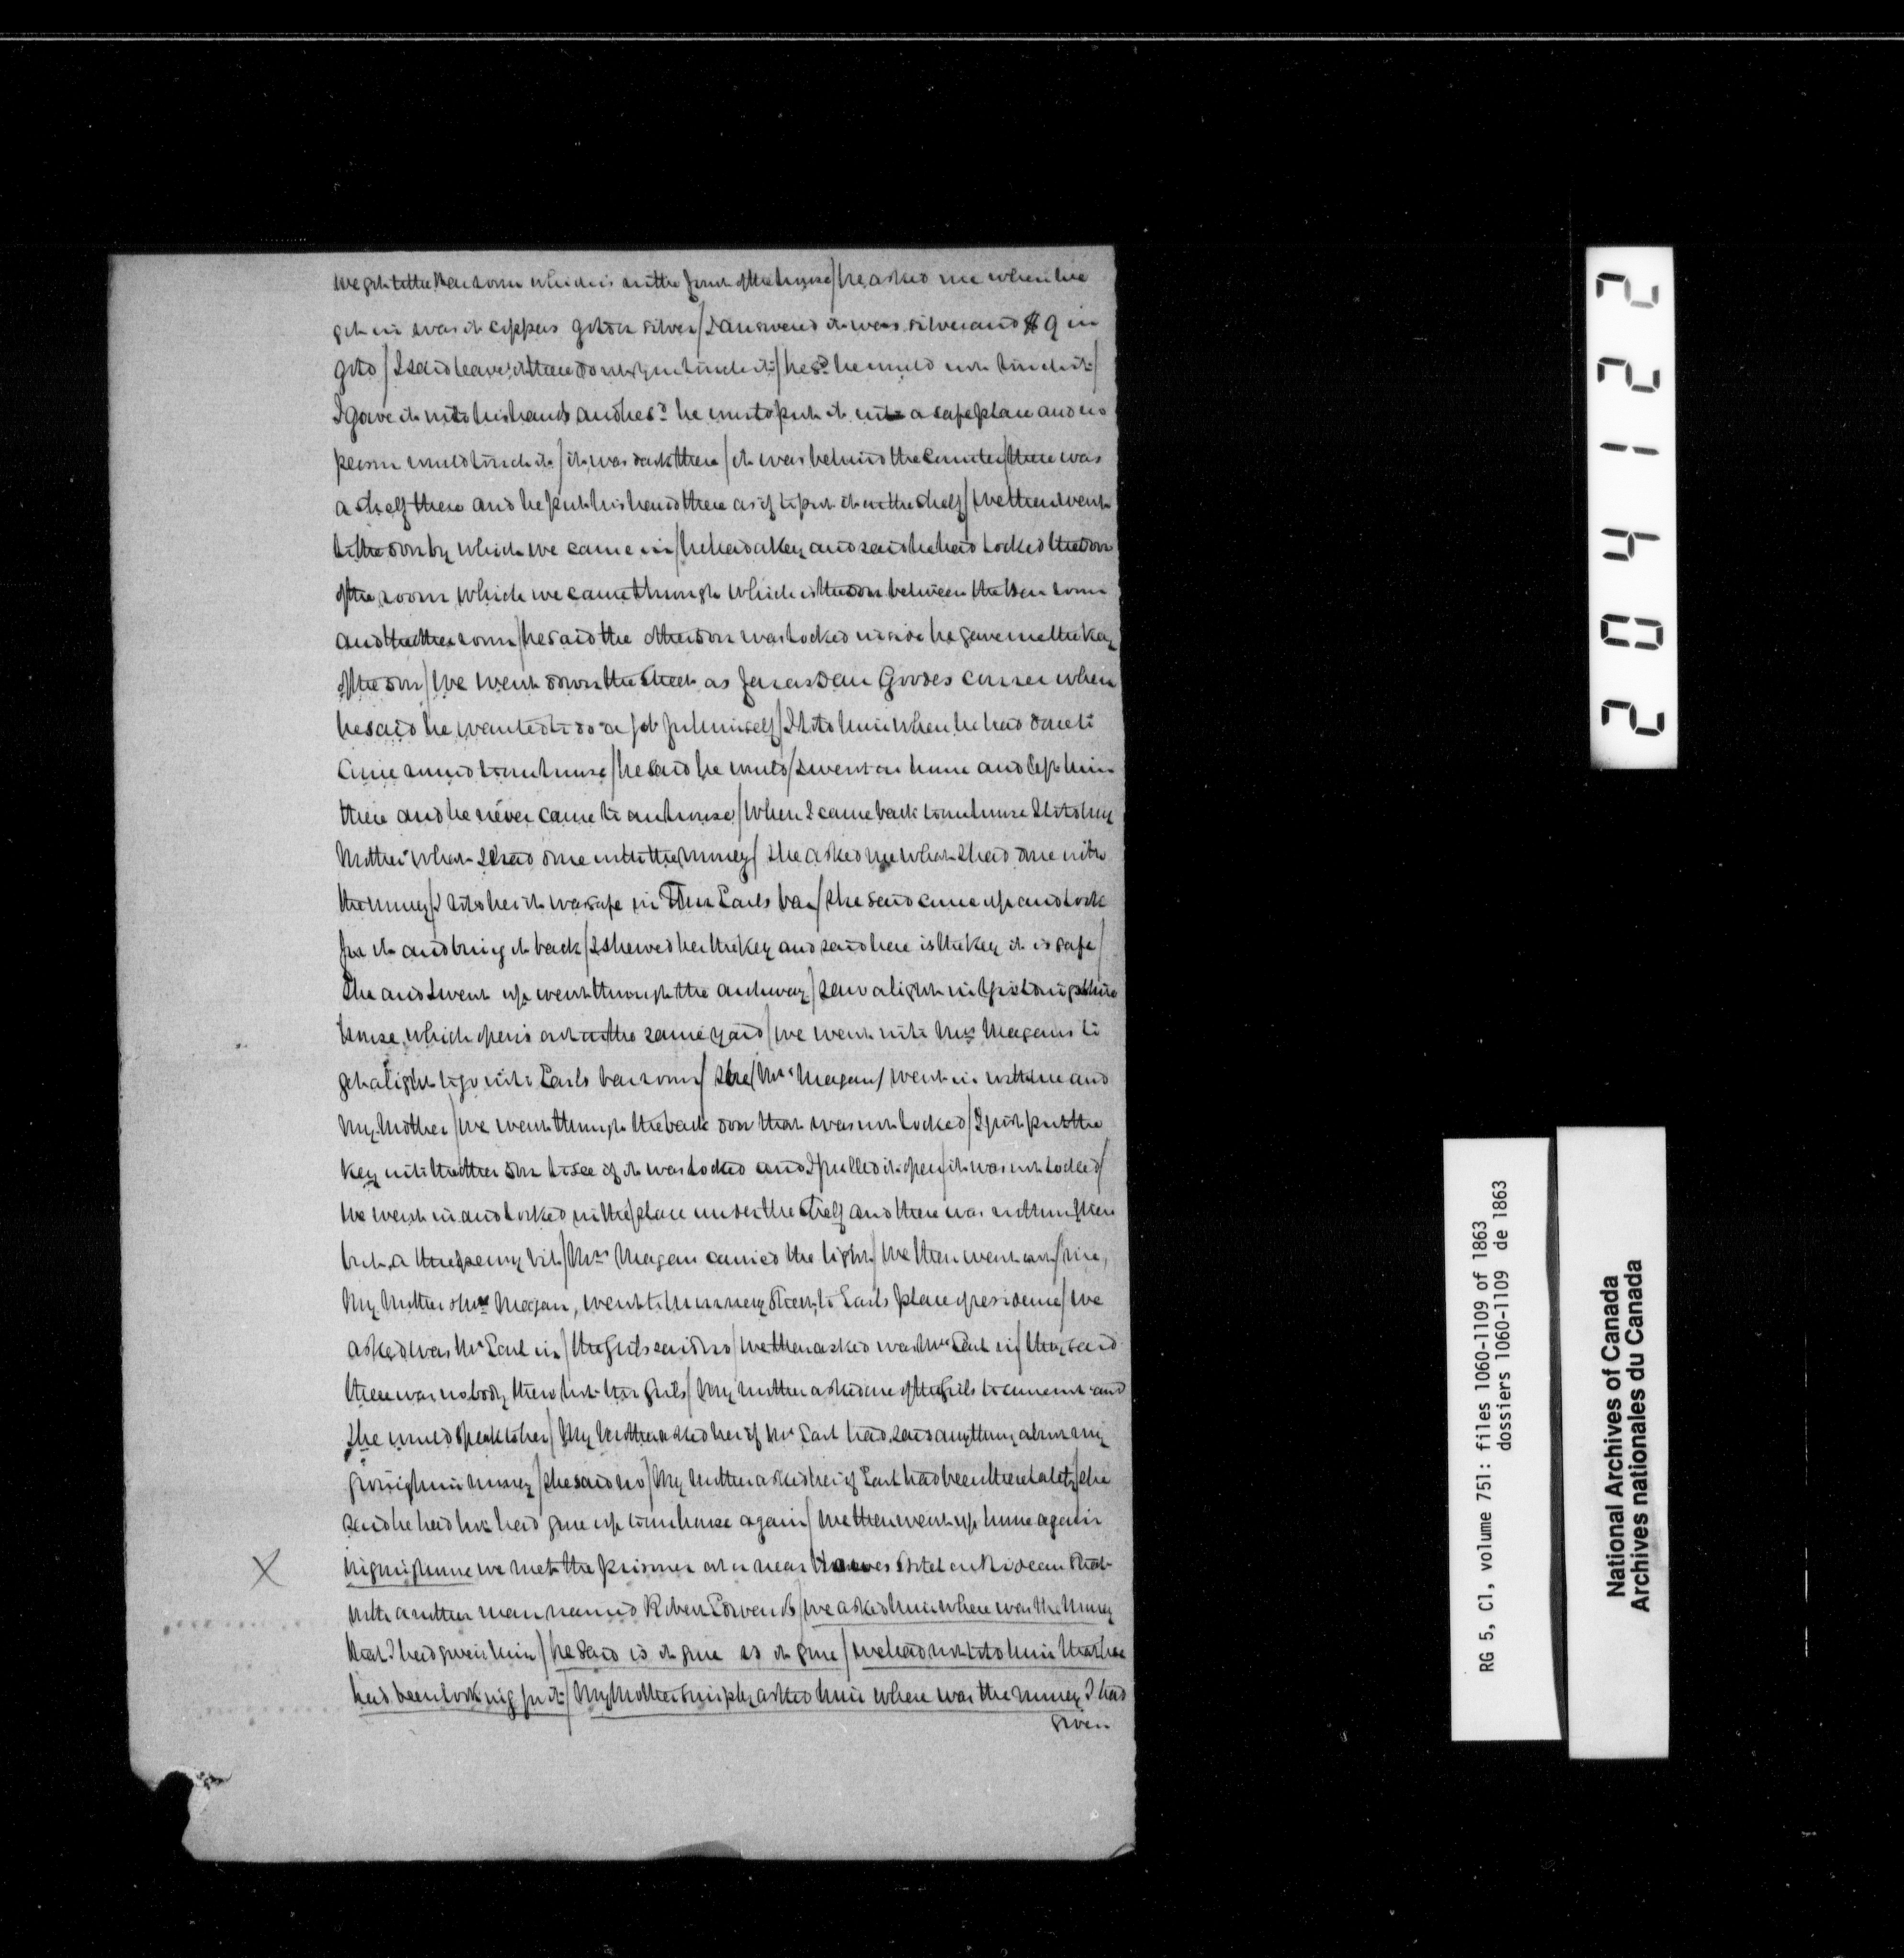 we got to the Bar room which is in the front of the house / he asked me when we
got in was it coppers gold or silver / I answered it was silver and $9 in
gold / I said leave it there don't you touch it / he sd he would not touch it /
I gave it into his hands and he sd he would put it into a safe place and no
person would touch it / it was dark there / it was behind the counter / there was
a shelf there and he put his hand there as if to put it on the shelf / we then went
to the door by which we came in / he had a key and said he had locked the door
of the room which we came through which is the door between the Bar room
and the other room / he said the other door was locked inside he gave me the key
of the door / we went down the street as far as Dan Goodes corner when
he said he wanted to do a job for himself / I told him when he had done to
come round to our house / he said he would / I went on home and left him
there and he never came to our house / when I came back to our house I told my
Mother what I had done with the money / she asked me what I had done with
the money / I told her it was safe in Earls bar / she said come up and look
for it and bring it back / I shewed her the key and said here is the key it is safe /
She and I went up went through the archway / saw a light in
house which opens out in the same yard / we went into Mrs Magans to
get a light to go into Earls bar room / she / Mrs Magan / went in with me and
my Mother / we went through the back door that was not locked / I just put the
key into the other door to see if it was locked and I pulled it open / it was not locked /
We went in and looked in the place under the shelf and there was nothing there
but a three penny bit / Mrs Magan carried the light / we then went out / me,
My Mother & Mrs Magan, went to Murray Street, to Earls place of residence / we
asked was Mr Earl in / the Girls said no / we then asked was Mrs Earl in / they said
there was no body there but two Girls / My Mother asked one of the Girls to come out and
she would speak to her / My Mother asked her if Mr Earl had said anything about my
giving him money / she said no / My Mother asked her if Earl had been there lately / she
said he had but had gone up to our house again / we then went up home again
in going home we met the prisoner at or near Hotel on Rideau Street
with another man named Robert Edwards / we asked him where was the money
that I had given him / he said is it gone is it gone / we had not told him that we
had been looking for it / My Mother simply asked him where was the money I had
given
22140 2
2 0 4 1 2 2
RG 5, C1, volume 751: files 1060-1109 of 1863
dossiers 1060-1109 de 1863
National Archives of Canada
Archives nationales du Canada